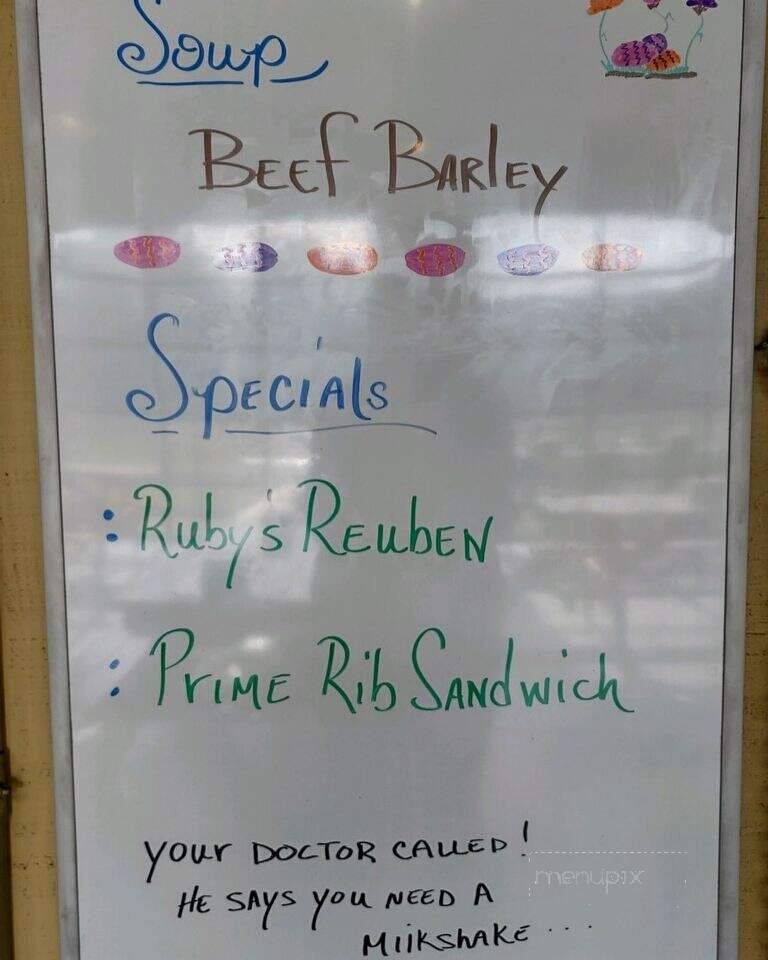 Soup
Beef Barley
Specials
: Ruby's Reuben
: Prime Rib Sandwich
Your Doctor Called!
He says you need a
Milkshake...
menupix